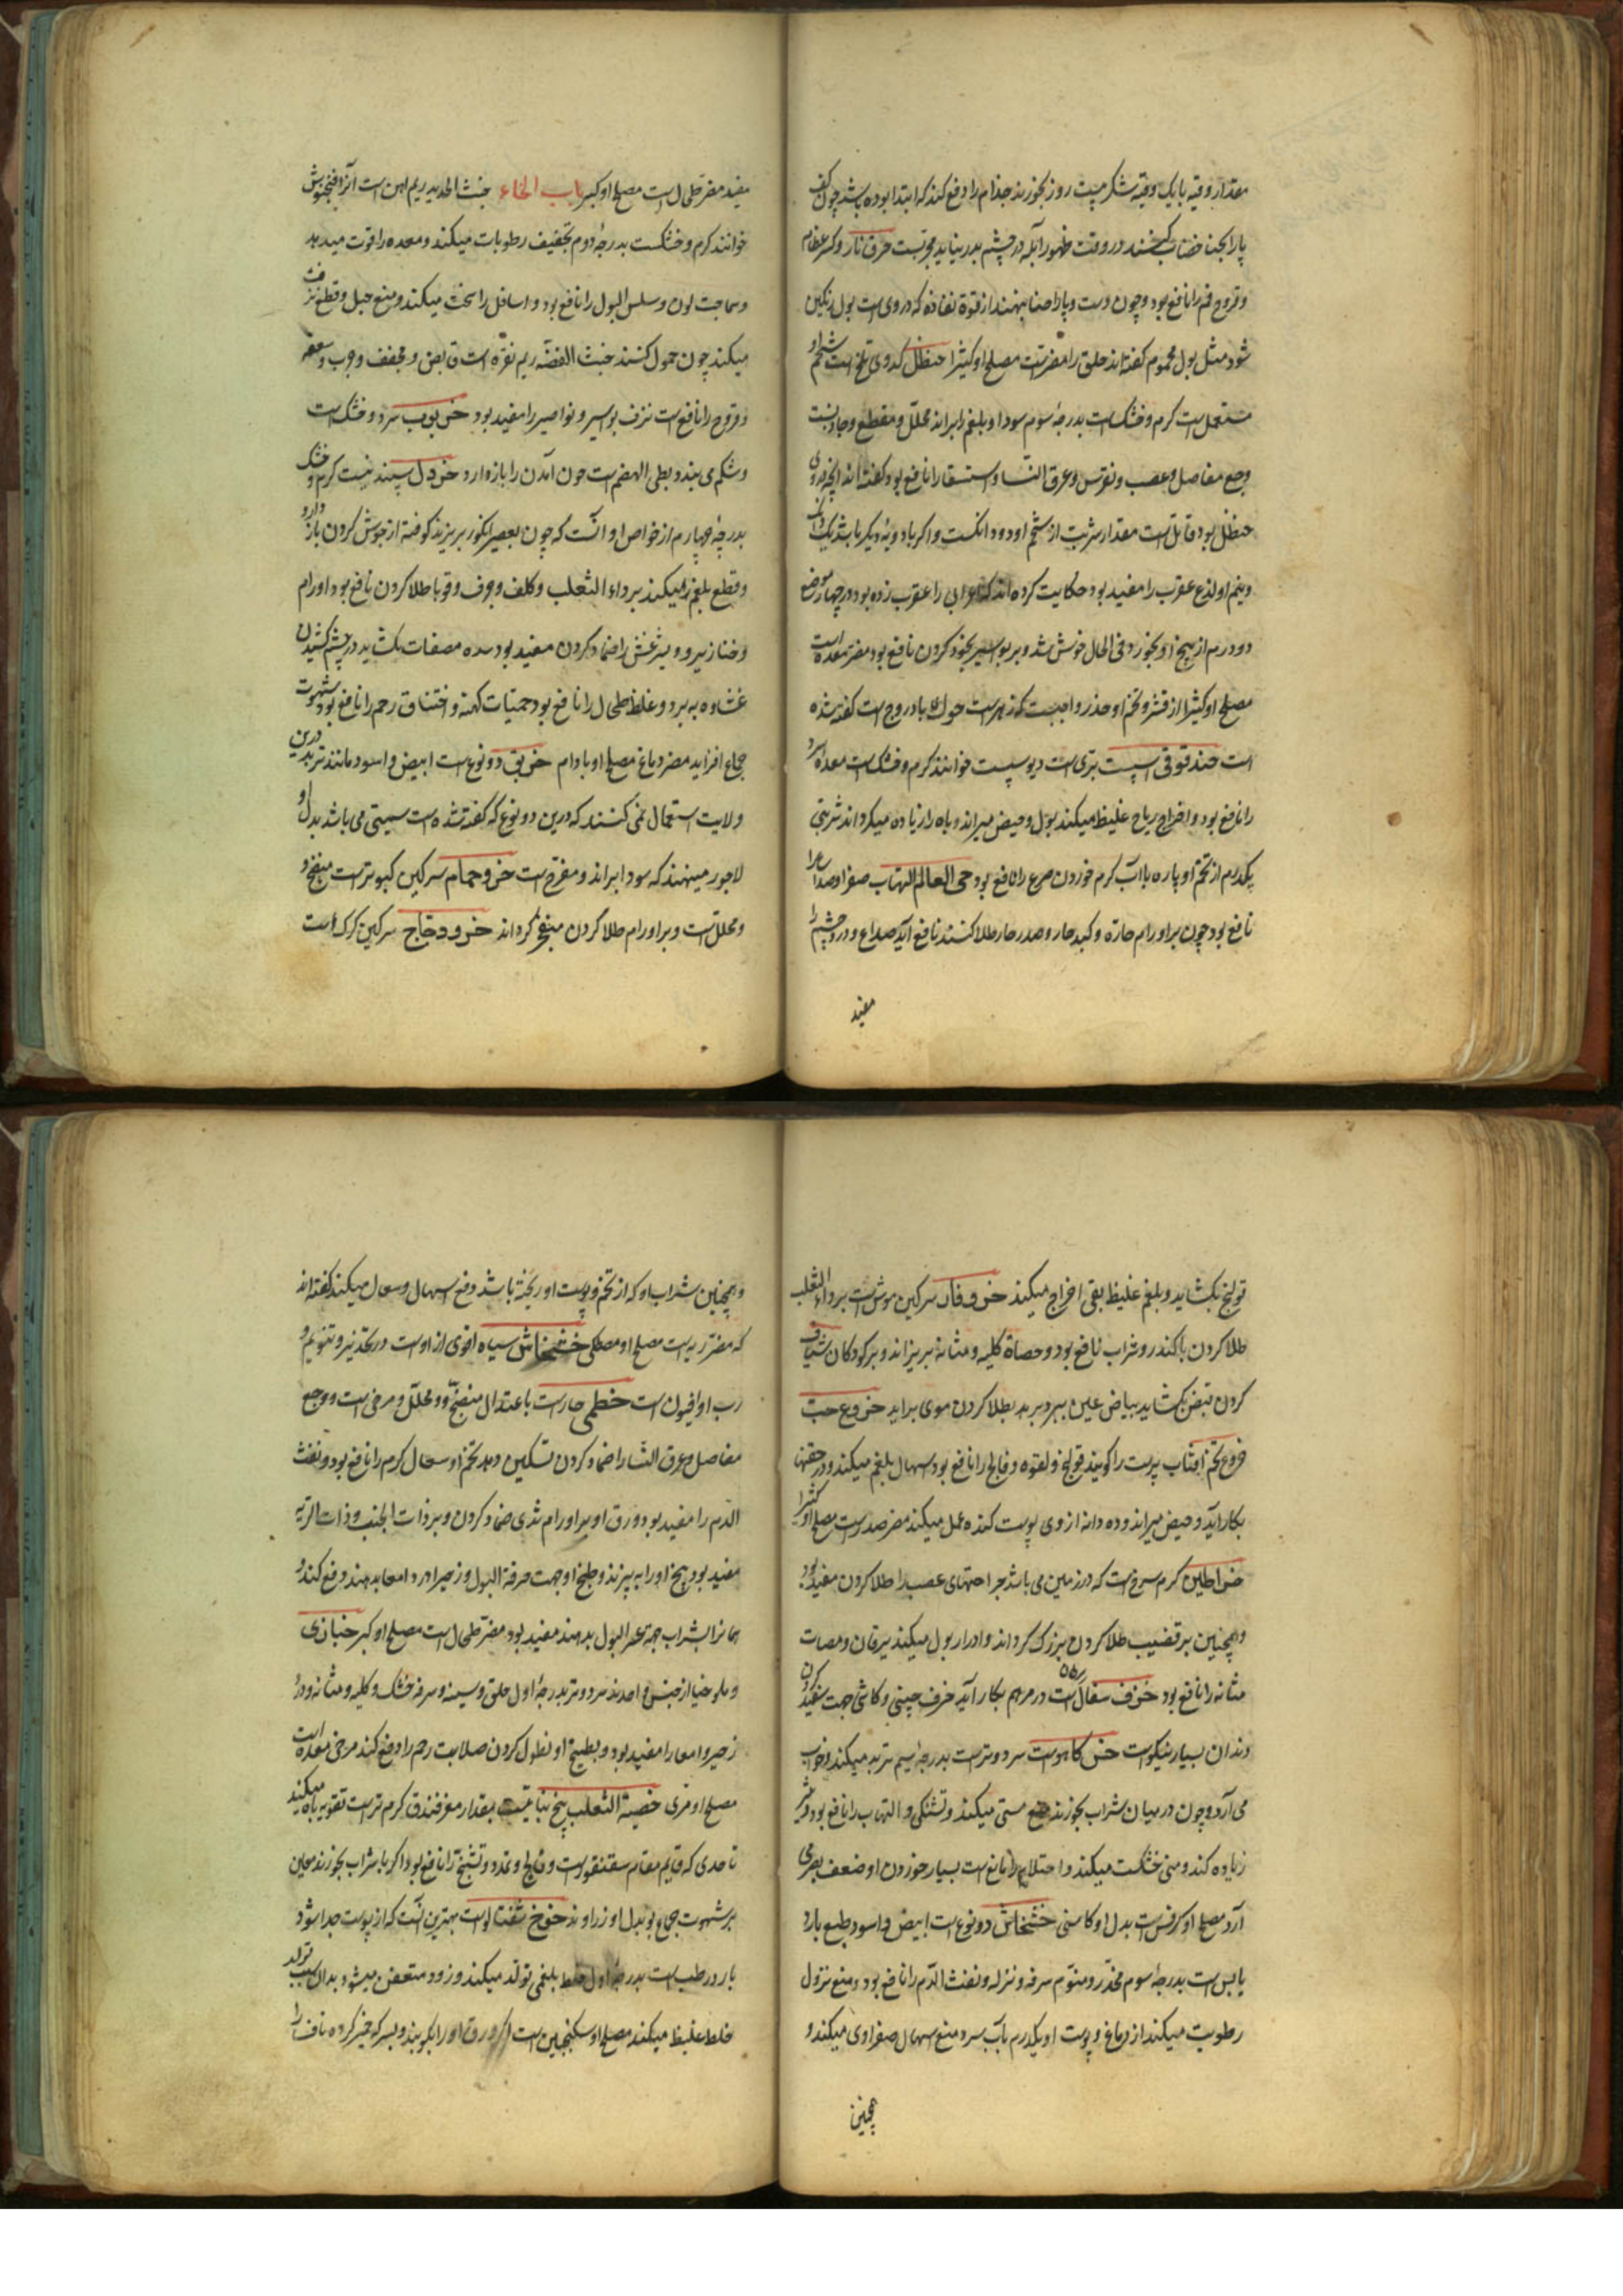 مقدار وقیه با یک وقیه شکر بیست روز بخورند جذام را دفع کند که ابتدا بوده باشد چون کف
پا را بحنا خضاب کنند در وقت ظهور آبله در چشم بدر نیاید مجربست حرق نار و کسر عظام
و قروح فم را نافع بود و چون دست و پا را حنا نهند از قوة نفاذه که در وی است بول رنگین
شود مثل بول محموم گفته‌اند حلق را مضرتست مصلح او کثیرا حنظل کدوی تلخ است شحم او
مستعمل است گرم و خشک است بدرجهٔ سوم سودا و بلغم را براند محلل و مقطع و جاذبست
وجع مفاصل و عصب و نقرس و عرق النسا و استسقا را نافع بود گفته‌اند آنچه در وی
حنظل بود قاتل است مقدار شربت از شحم او دو دانگست و اگر با دویهٔ دیگر باشد یک دانک
و نیم او لذع عقرب را مفید بود حکایت کرده‌اند که اعرابی را عقرب زده بود در چهار موضع
دو درم از بیخ او بخورد فی الحال خوش شد و بر بواسیر بخور کردن نافع بود مضر معده است
مصلح او کثیرا از قشر و تخم او حذر واجبست که زهر است حوک بادروج است گفته شده
است حندقوقی اسپست بری است دیو سپست خوانند گرم و خشک است معده سرد
را نافع بود و اخراج ریاح غلیظ میکند بول و حیض میراند و باه را زیاده میگرداند شربتی
یکدرم از تخم او پاره با آب گرم خوردن صرع را نافع بود حی العالم التهاب صفرا و صداع را
نافع بود چون بر اورام حاره و کبد حار و صدر حار طلا کنند نافع آید صداع و درد چشم را
مفید
مفید مضر طحال است مصلح او کبر باب الخاء خبث الحدید ریم آهن است آنرا فنجنوش
خوانند گرم و خشکست بدرجهٔ دوم تجفیف رطوبات میکند و معده را قوت میدهد
و سماجت لون و سلس البول را نافع بود و اسافل را سخت میکند و منع حبل و قطع نزف
میکند چون حمول کنند خبث الفضه ریم نقره است قابض و مجفف و جرب و سعفه
و قروح را نافع است نزف بواسیر و نواصیر را مفید بود خرنوب سرد و خشک است
و شکم می بندد بطی الهضم است خون آمدن را باز دارد خردل سپند نیست گرم و خشک
بدرجهٔ چهارم از خواص او آنست که چون بعصیر انگور بریزند کوفته از جوش کردن باز دارد
و قطع بلغم را میکند بر داء الثعلب و کلف و برص و قوبا طلا کردن نافع بود اورام
و خنازیر و لیثرغش را ضماد کردن مفید بود سده مصفات بکشاید در چشم کشیدن
غشاوه ببرد و غلظ طحال را نافع بود حمیات کهنه و اختناق رحم را نافع بود شهوت
جماع افزاید مضر دماغ مصلح او بادام خربق دو نوع است ابیض و اسود مانند تربد درین
ولایت استعمال نمی کنند که درین دو نوع که گفته شده است سمیتی می باشد بدل او
لاجورد مینهند که سودا براند و مفرح است خرو حمام سرگین کبوتر است منضج و
و محلل است و بر اورام طلا کردن منضج گرداند خرو دجاج سرگین کرک است
قولنج بکشاید و بلغم غلیظ بقی اخراج میکند خرو فار سرگین موش است بر داء الثعلب
طلا کردن با کندر و شراب نافع بود و حصاة کلیه و مثانه بریزاند و بر کودکان شیاف
کردن قبض بکشاید بیاض عین ببرد بر بد بطلا کردن موی براید خروع حب
خروع تخم آفتاب پرست را گویند قولنج و لقوه و فالج را نافع بود اسهال بلغم میکند و در حقنها
بکار آید و حیض میراند و ده دانه از وی پوست کنده عمل میکند مضر صدر است مصلح او کثیرا
خراطین کرم سرخ است که در زمین می باشد جراحتهای عصب را طلا کردن مفید بود
و همچنین بر قضیب طلا کردن بزرگ گرداند و ادرار بول میکند یرقان و حصات
مثانه را نافع بود خزف سفال است در مرهم بکار آید خزف چینی و کاشی جهت سفید کردن
دندان بسیار نیکوست خس کاهوست سرد و تر است بدرجهٔ سیم تربد میکند و خواب
می آرد و چون در میان شراب بخورند منع مستی میکند و تشنگی و التهاب را نافع بود و شیر
زیاده کند و منی خشکست میکند و احتلام را نافع است بسیار خوردن او ضعف بصر می
آرد مصلح او کرفس است بدل او کاسنی خشخاش دو نوع است ابیض و اسود طبع بارد
یابس است بدرجهٔ سوم مخدر و منوم سرفه و نزله و نفث الدم را نافع بود و منع نزول
رطوبت میکند از دماغ و پوست او یکدرم بآب سرد منع اسهال صفراوی میکند و
همچنین
و همچنین شراب او که از تخم و پوست او پخته باشد دفع اسهال و سعال میکند گفته‌اند
که مضر ریه است مصلح او مصطکی خشخاش سیاه اقوی از اوست در تخدیر و تنویم و
رب او افیون است خطمی حار است باعتدال منضج و محلل و مرخی است و وجع
مفاصل و عرق النسا را ضماد کردن تسکین دهد تخم او سعال گرم را نافع بود و نفث
الدم را مفید بود ورق او بر اورام ثدی ضماد کردن و بر ذات الجنب و ذات الریه
مفید بود بیخ او را بپزند و طبخ او جهت حرقة البول و زحیر و درد امعا بدهند دفع کند و
همانرا بشراب جهة عسر البول بدهند مفید بود مضر طحال است مصلح او کبر خبازی
و ملوخیا از جنس واحدند سرد و تر بدرجهٔ اول حلق و سینه و سرفه خشک و کلیه و مثانه و درد
زحیر و امعا را مفید بود و بطبیخ او نطول کردن صلابت رحم را دفع کند مرخی معده است
مصلح او مری خصیة الثعلب بیخ نباتیست بمقدار مغز فندق گرم تر است تقویه باه میکند
تا حدی که قایم مقام سقنقور است و فالج و تمدد و تشنج را نافع بود اگر با شراب بخورند معین
بر شهوت جماع بود بدل او زراوند خوخ شفتالوست بهترین آنست که از پوست جدا شود
بارد رطب است بدرجهٔ اول خلط بلغمی تولد میکند و زود متعفن میشود بدان سبب تولد
خلط غلیظ میکند مصلح او سکنجبین است اگر ورق او را بکوبند و بسرکه خمیر کرده ناف را